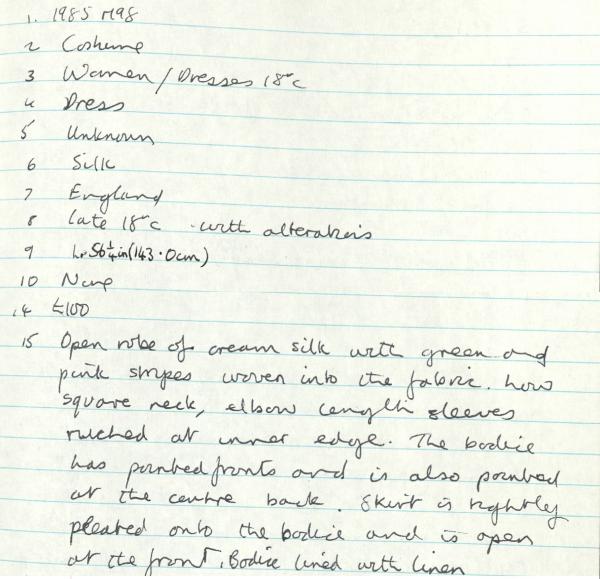 1. 1985 M98
2 Costume
3 Women/Dresses 18thc
4 Dress
5 Unknown
6 Silk
7 England
8 Late 18thc with alterations
9 L.56¼in(143.0cm)
10 None
14 £100
15 Open robe of cream silk with green and
pink stripes woven into the fabric. Low
square neck, elbow length sleeves
ruched at inner edge. The bodice
has pointed fronts and is also pointed
at the centre back. Skirt is tightly
pleated onto the bodice and is open
at the front. Bodice lined with linen